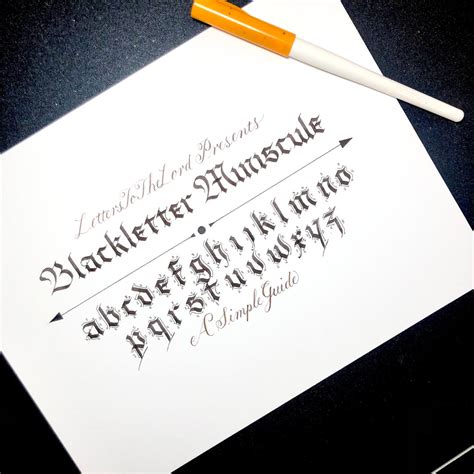 LettersToTheLord Presents
Blackletter Miniscule
abcdefghijklmno
pqrstuvwxyz
A Simple Guide